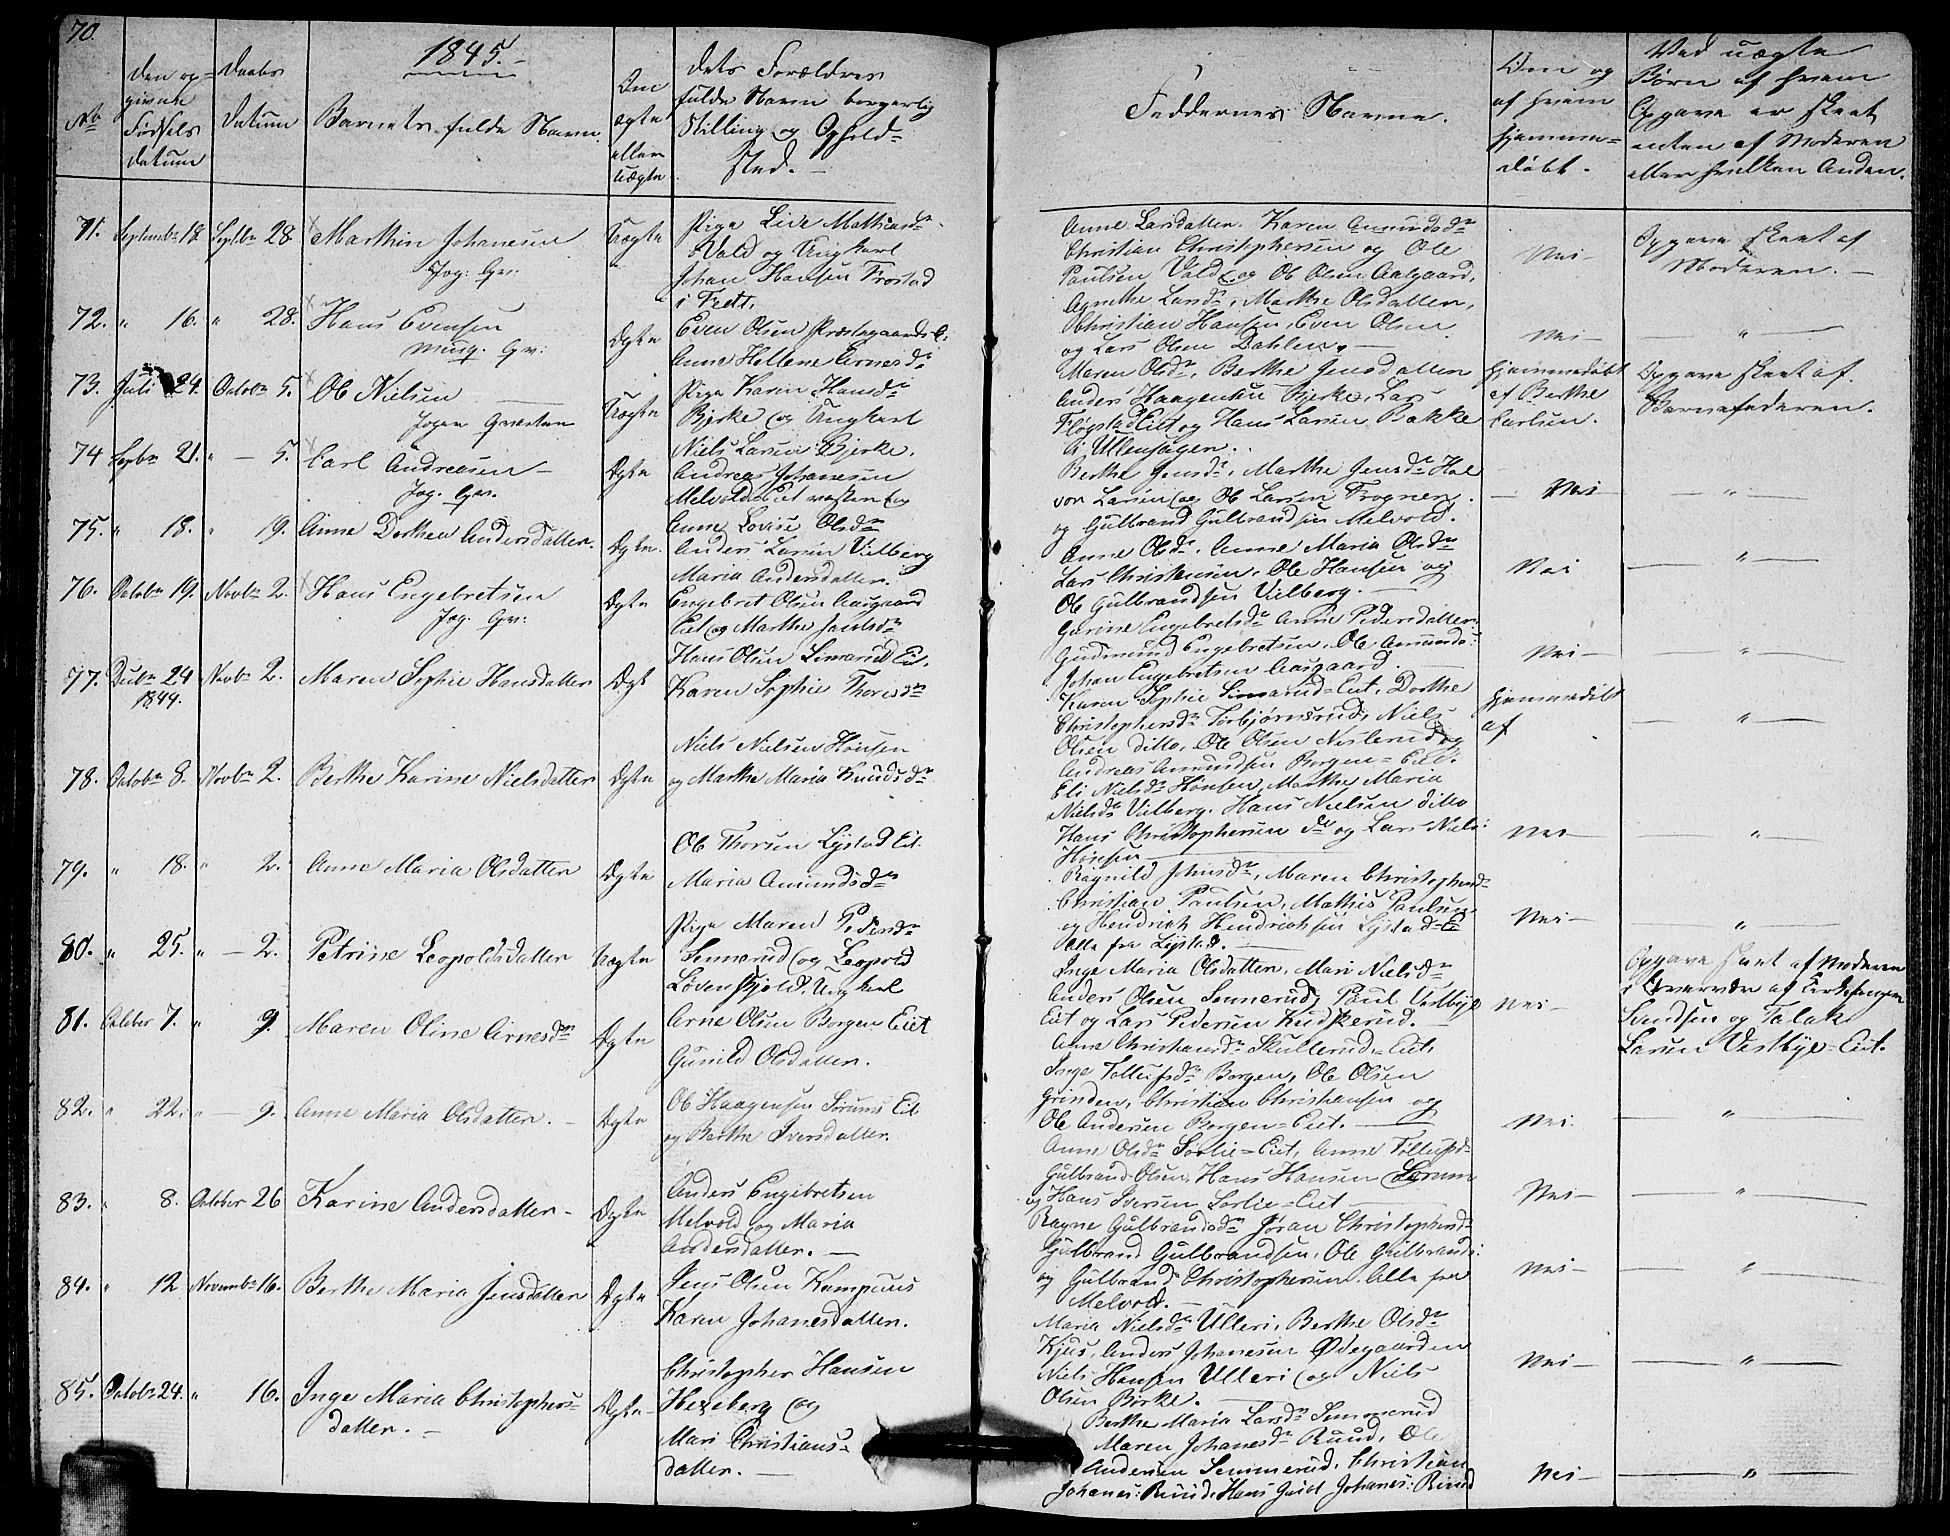 70.
1845.
No
den op=
given
Fødsels
datum
Daabs
datum
Barnets fulde Navn
Om
ægte
eller
uægte
dets Forældres
fulde Navn borgerlig
Stilling og Ophold=
sted.
Faddernes Navne.
Om og
af hvem
hjemme=
døbt.
Ved uægte
Børn af hvem
Opgave er skeet
enten af Moderen
eller hvilken Anden.
71. Septembr 18. Septbr 28. Marthin Johanesen
Jog. Gr.
Uægte
Pige Live Mathiasdr
Vold og Ungkarl
Johan Hansen Frostad
i Fedt.
Anne Larsdatter. Karen Amundsdr
Christian Christophersen og Ole
Paulsen Vold og Ole Olsen Aasgaard.
Nei
Opgave skeet af
Moderen.
72. " 16. " 28. Hans Evensen
Musq. Gr:
Ægte
Even Olsen Præstegaards E:
Anne Hellene Arnesdr
Agnethe Larsdr, Marthe Olsdatter,
Christian Hansen, Even Olsen
og Lars Olsen Dahlen.
Nei "
73. Juli 24. Octobr 5. Ole Nielsen
Jogen Qværten
Uægte
Pige Karen Hansdr
Bjerke og Ungkarl
Niels Larsen Bjerke.
Maren Olsdr, Berthe Jensdatter
Anders Haagensen Bjerke, Lars
Fløgstad Eiet og Hans Larsen Bakke
i Ullensagen.
Hjemmedøbt
af Berthe
Carlsen.
Opgave skeet af
Barnefaderen.
74 Sepbr 21. " 5. Carl Andreasen
Jog. Gr.
Ægte
Andreas Johanesen
Melvolds Eiet og
Anne Lovise Olsdr
Berthe Jensdr, Marthe Jensdr Hal
vor Larsen og Ole Larsen Frogner
og Gulbrand Gulbrandsen Melvold.
Nei "
75. " 18. " 19. Anne Dorthea Andersdatter.
Ægte.
Anders Larsen Vilberg
Maria Andersdatter.
Anne Olsdr. Anne Maria Olsdr
Lars Christensen, Ole Hansen og
Ole Gulbrandsen Vilberg.
Nei "
76. Octobr 19. Novbr 2. Hans Engebretsen
Jog. Gr:
Ægte
Engebret Olsen Aasgaard
Eiet og Marthe
Gurine Engebretsdr Anne Pedersdatter.
Gudmund Engebretsen, Ole Amunds:
Johan Engebretsen Aasgaard.
Nei "
77. Decbr 24
1844.
Novbr 2. Maren Sophie Hansdatter Ægt
Hans Olsen Simarud Eie.
Karen Sophie Thoresdr
Karen Sophie Simarud=Eiet, Dorthe
Christophersdr Torbjørnsrud, Niels
Olsen ditto, Ole Olsen Neslerud og
Andreas Amundsen Borgen=Eiet.
Hjemmedøbt
af
"
78. Octobr 8. Novbr 2. Berthe Karine Nielsdatter Ægte
Niels Nielsen Hønsen
og Marthe Maria Knudsdr
Eli Nielsdr Hønsen, Marthe Maria
Nielsdr Vilberg. Hans Nielsen ditto
Hans Christophersen do og Lars Niels:
Hønsen
Nei "
79. " 18. " 2. Anne Maria Olsdatter Ægte
Ole Thorsen Lystad Eie.
Maria Amundsdr
Ragnild Johnsdr, Maren Christophersdr
Christian Paulsen, Mathis Paulsen
og Hendrich Hendrichsen Lystad=E
Alle fra Lystad.
Nei "
80. " 25. " 2. Petrine Leopoldsdatter Uægte
Pige Maren Pedersdr
Sennerud og Leopold
Løvenskjold, Ungkarl
Inge Maria Olsdatter, Mari Nielsdr
Anders Olsen Sennerud, Paul Vestbye
Eiet og Lars Pedersen Kudskerud.
Nei
Opgave skeet af Moderen
i Overvær af Kirkesanger
Svendsen og
Larsen Vestbye=Eiet.
81. October 7. " 9. Maren Oline Arnesdr Ægte
Arne Olsen Borgen Eiet
Gunild Olsdatter.
Anne Christiansdr Skullerud=Eiet
Inge Tollefsdr Borgen, Ole Olsen
Grinden, Christian Christiansen og
Ole Andersen Borgen=Eiet.
Nei. "
82. " 22. " 9. Anne Maria Olsdatter. Ægte
Ole Haagensen Sørums Eie
og Berthe Iversdatter.
Anne Olsdr Sørlie=Eiet, Anne Tollefsdr
Gulbrand Olsen, Hans Hansen Sørum
og Hans Iversen Sørlie=Eiet
Nei "
83. " 8. October 26 Karine Andersdatter Ægte
Anders Engebretsen
Melvold og Maria
Andersdatter.
Ragne Gulbrandsdr Jøran Christophersdr
Gulbrand Gulbrandsen, Ole Gulbrands:
og Gulbrand Christophersen. Alle fra
Melvold.
Nei "
84. " 12 Novembr 16. Berthe Maria Jensdatter Ægte
Jens Olsen Kampuus
Karen Johanesdatter.
Maria Nielsdr Ulleri, Berthe Olsdr
Kjus, Anders Johanesen Ødegaarden
Niels Hansen Ulleri og Niels
Olsen Birke.
Nei "
85. Octobr 24. " 16. Inge Maria Christophers=
datter.
Ægte
Christopher Hansen
Hexeberg og
Mari Christians=
datter.
Berthe Maria Larsdr Semmerud
Maren Johanesdr Ruud, Ole
Andersen Semmerud, Christian
Johanes: Ruud, Hans Gaid Johanes: Ruud
Nei "